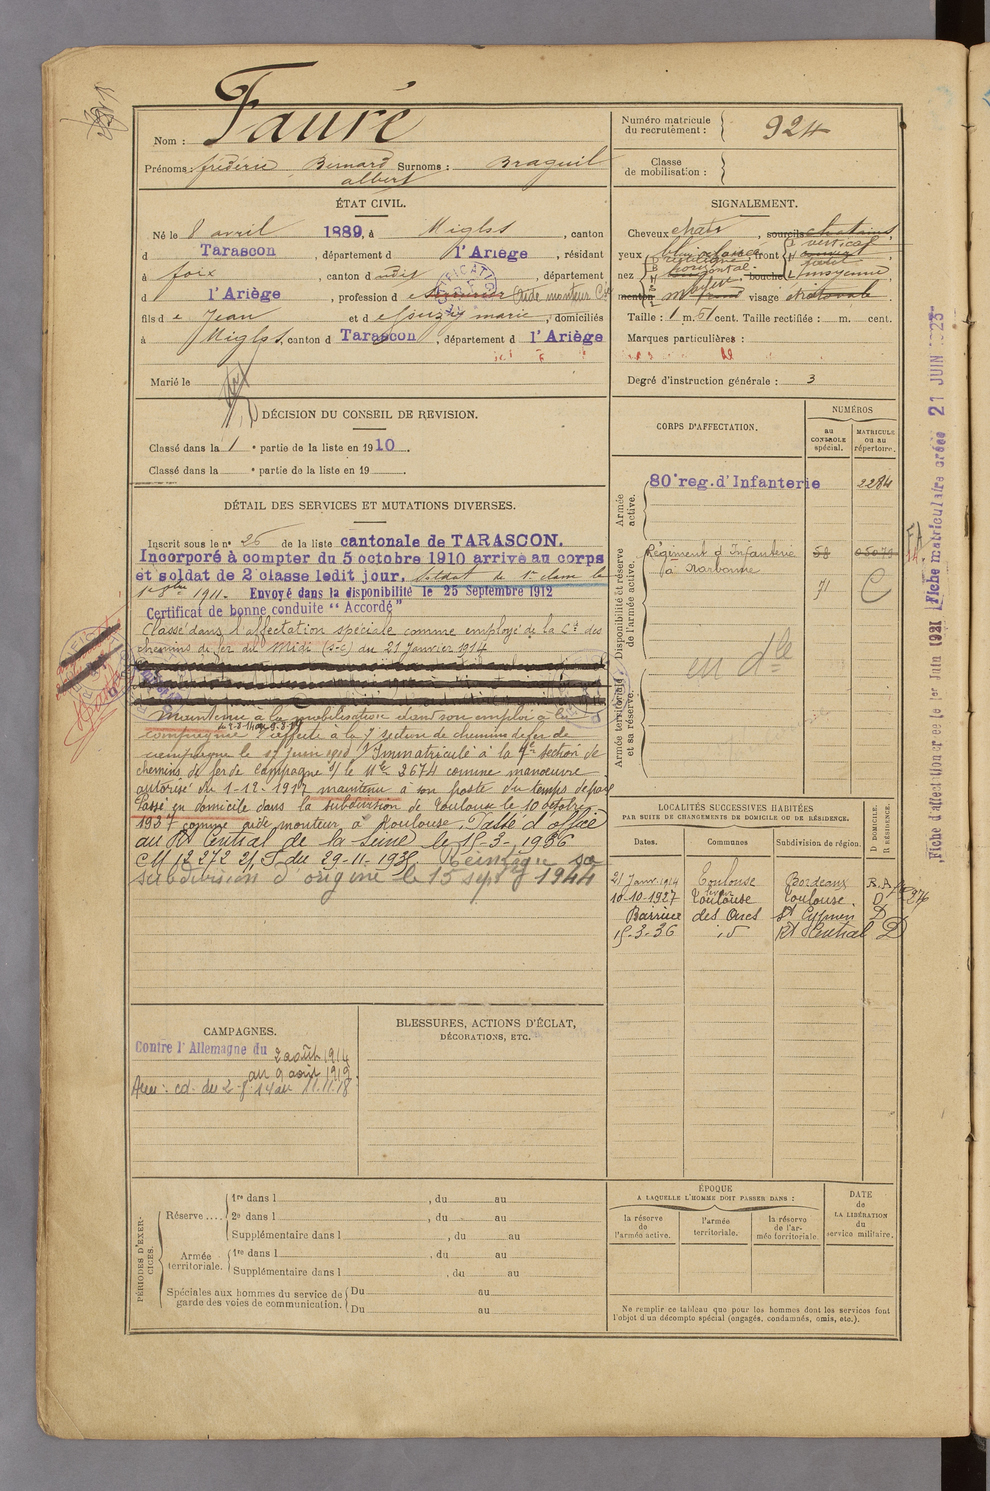 Nom : Fauré
Prénoms : frédéric Bernard Surnoms : Braguil
albert
Numéro matricule
du recrutement : 924
Classe
de mobilisation :
ÉTAT CIVIL.
Né le 8 avril 1889, à Miglos, canton
d Tarascon, département d l'Ariège, résidant
à foix, canton d udit, département
d l'Ariège, profession d e Aide monteur
fils de Jean et de Gouzy marie, domiciliés
à Miglos, canton d Tarascon, département d l'Ariège
Marié le
SIGNALEMENT.
Cheveux chatr, sourcils chatains,
yeux, front
nez, bouche moyenne,
menton visage
Taille : 1 m. 61 cent. Taille rectifiée : m. cent.
Marques particulières :
Degré d'instruction générale : 3
DÉCISION DU CONSEIL DE REVISION.
Classé dans la 1e partie de la liste en 1910.
Classé dans la e partie de la liste en 19
DÉTAIL DES SERVICES ET MUTATIONS DIVERSES.
Inscrit sous le no 26 de la liste cantonale de TARASCON.
Incorporé à compter du 5 octobre 1910 arrivé au corps
et soldat de 2e classe ledit jour. Soldat de 1e classe le
1er 8bre 1911. Envoyé dans la disponibilité le 25 Septembre 1912
Certificat de bonne conduite "Accordé"
Classé dans l'affectation spéciale comme employé de la Cie des
chemins de fer du Midi (s-c) du 21 Janvier 1914
Maintenu à la mobilisation dans son emploi à la
compagnie affecté à la 7 section de chemins de fer de
campagne le 17 juin 1918 Immatriculé à la 7e section de
chemins de fer de Campagne s/ le Nle 2674 comme manoeuvre
autorisé du 1-12-1917 maintenu à son poste du temps de paix
Passé en domicile dans la subdivision de Toulouse le 10 octobre
1937 comme aide monteur à Toulouse. Passé d'office
au Rt Central de la Seine le 15-3-1936
CM 12272 2/S du 29-11-1935. Réintègre sa
subdivision d'origine le 15 sept 1944
CORPS D'AFFECTATION.
NUMÉROS
au
CONTROLE
spécial.
MATRICULE
ou au
répertoire.
Armée
active.
80e reg. d'Infanterie 2284
Disponibilité et réserve
de l'armée active.
Régiment d'Infanterie
à Narbonne
71 C
Armée territoriale
et sa réserve.
en dle
LOCALITÉS SUCCESSIVES HABITÉES
PAR SUITE DE CHANGEMENTS DE DOMICILE OU DE RÉSIDENCE.
Dates. Communes Subdivision de région. D DOMICILE. R RÉSIDENCE.
21 Janv. 1914 Toulouse Bordeaux R.A
10-10-1927 Toulouse Toulouse D
Barrière des Arcs St Cyprien D
15-3-36 id Rt Central D
CAMPAGNES.
Contre l'Allemagne du 2 août 1914
au 9 août 1919
du 2-8-14 au 11.11.18
BLESSURES, ACTIONS D'ÉCLAT,
DÉCORATIONS, ETC.
PÉRIODES D'EXERCICES.
Réserve....
1re dans l, du au
2e dans l, du au
Supplémentaire dans l, du au
Armée
territoriale.
1re dans l, du au
Supplémentaire dans l, du au
Spéciales aux hommes du service de
garde des voies de communication.
Du au
Du au
ÉPOQUE
A LAQUELLE L'HOMME DOIT PASSER DANS :
la réserve
de
l'armée active.
l'armée
territoriale.
la réserve
de l'ar-
mée territoriale.
DATE
de
LA LIBÉRATION
du
service militaire.
Ne remplir ce tableau que pour les hommes dont les services font
l'objet d'un décompte spécial (engagés, condamnés, omis, etc.).
Fiche d'affectation créée le 1er Juin 1921 Fiche matriculaire créée 21 JUIN 1923